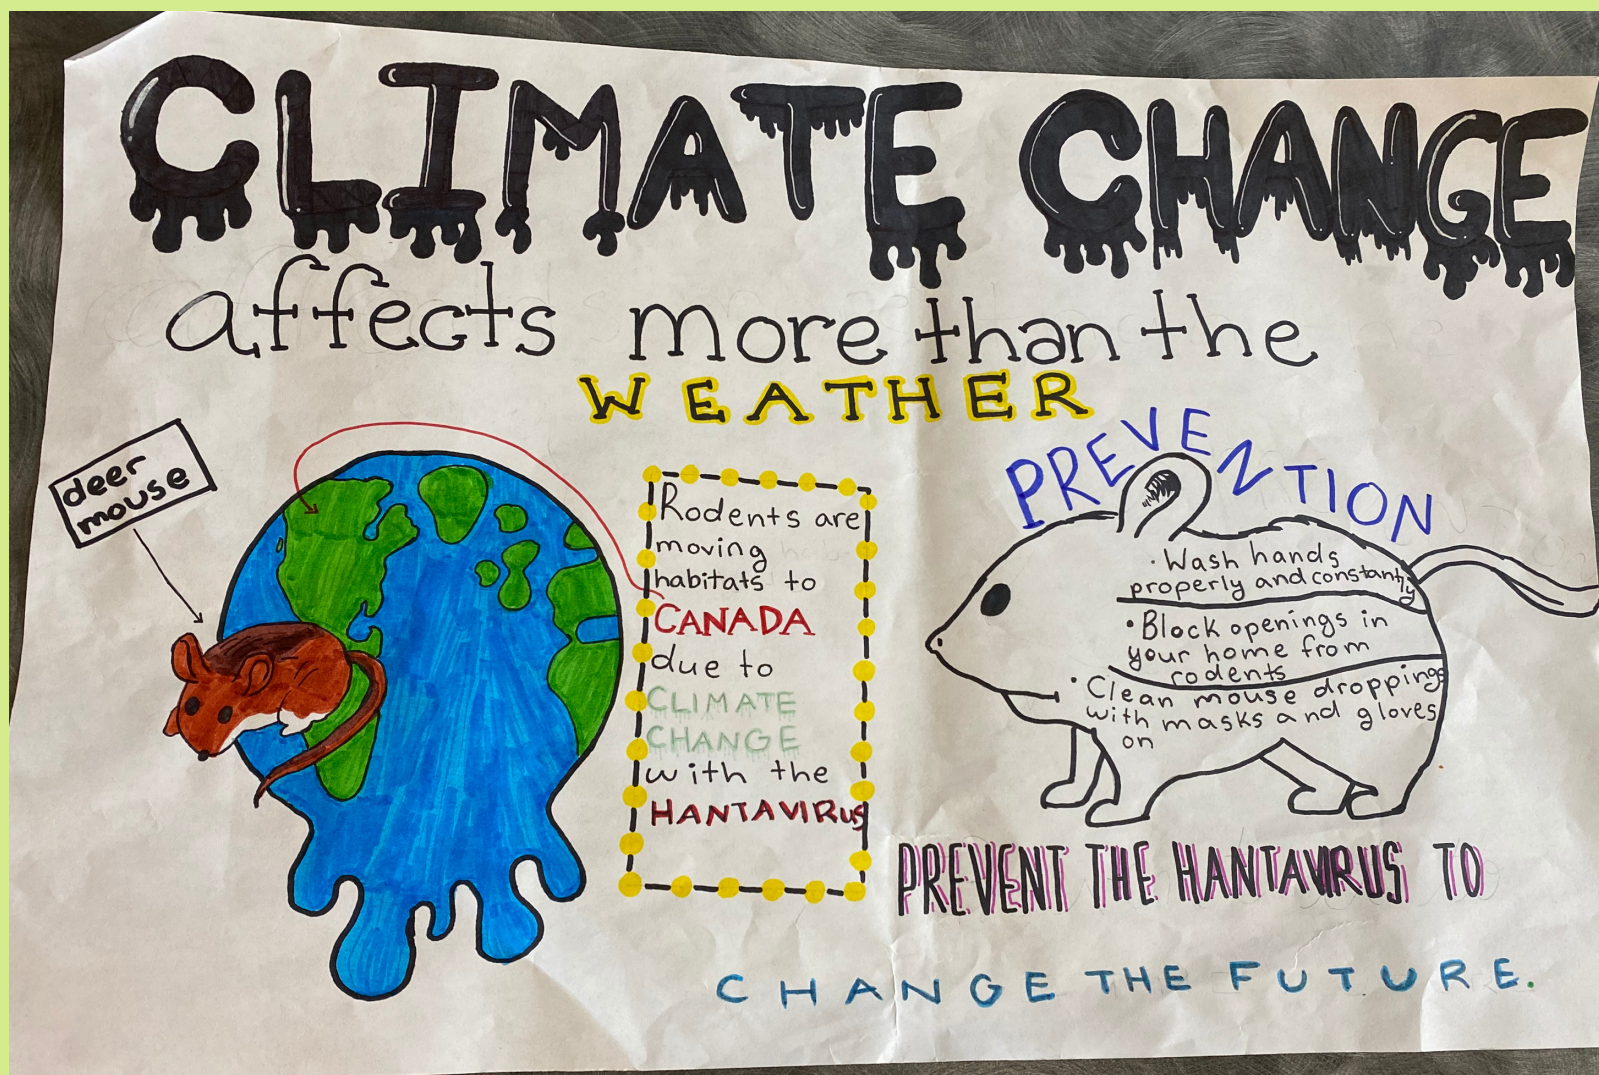 CLIMATE CHANGE
affects more than the
WEATHER
deer
mouse
Rodents are
moving
habitats to
CANADA
due to
CLIMATE
CHANGE
with the
HANTAVIRUS
PREVENTION
• Wash hands
properly and constantly
• Block openings in
your home from
rodents
• Clean mouse droppings
with masks and gloves
on
PREVENT THE HANTAVIRUS TO
CHANGE THE FUTURE.